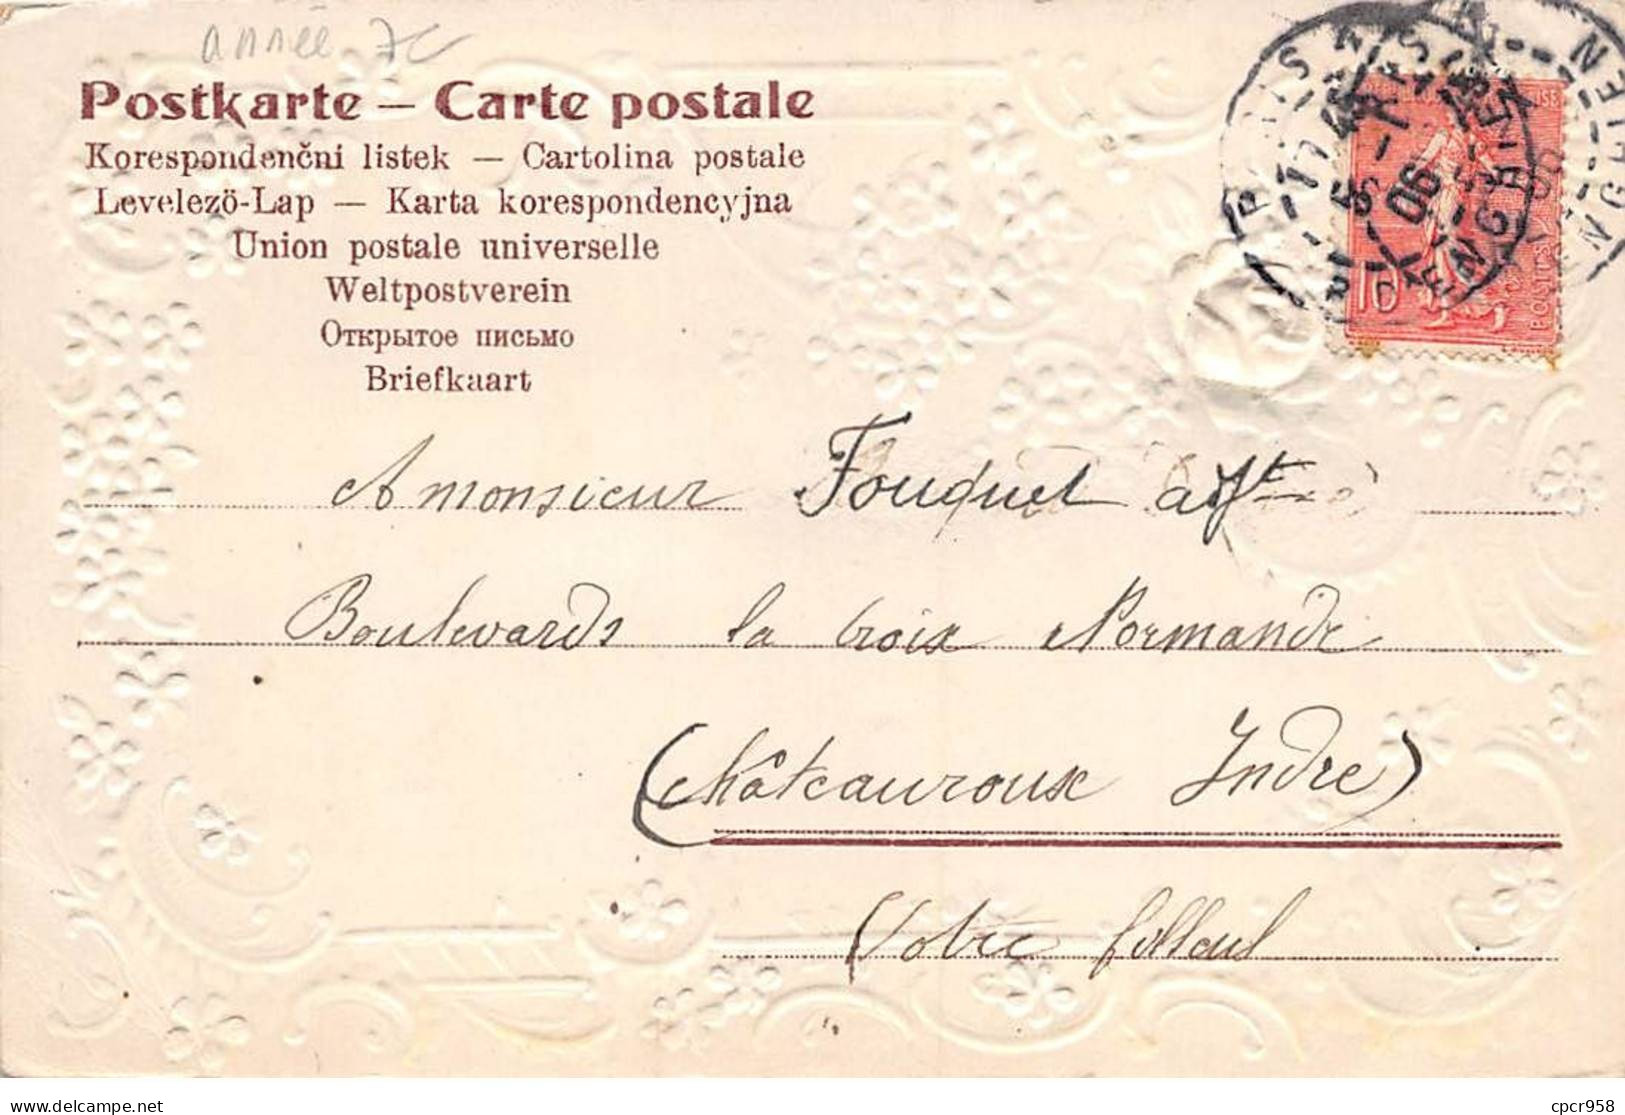 année
Postkarte — Carte postale
Korespondenční listek — Cartolina postale
Levelezö-Lap — Karta korespondencyjna
Union postale universelle
Weltpostverein
Открытое письмо
Briefkaart
10
A monsieur Fouquet
Boulevards la Croix Normande
(Châteauroux Indre)
Votre filleul
delcampe.net
cpcr958